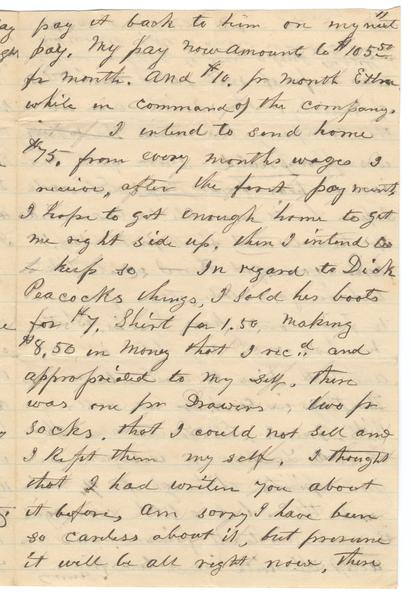 pay it back to him on my next
pay. My pay now amount to $105 50
pr month. And $10. pr month Extra
while in command of the company.
I intend to send home
$75. from every months wages I
receive, after the first payment
I hope to get enough home to get
me right side up, then I intend to
keep so In regard to Dick
Peacocks things, I sold his boots
for $7, Shirt for 1.50, making
$8.50 in money that I rec.d and
appropriated to my self, there
was one pr Drawers, two pr
socks, that I could not sell and
I kept them my self. I thought
that I had writen you about
it before, am sorry I have been
so careless about it, but presume
it will be all right now, there